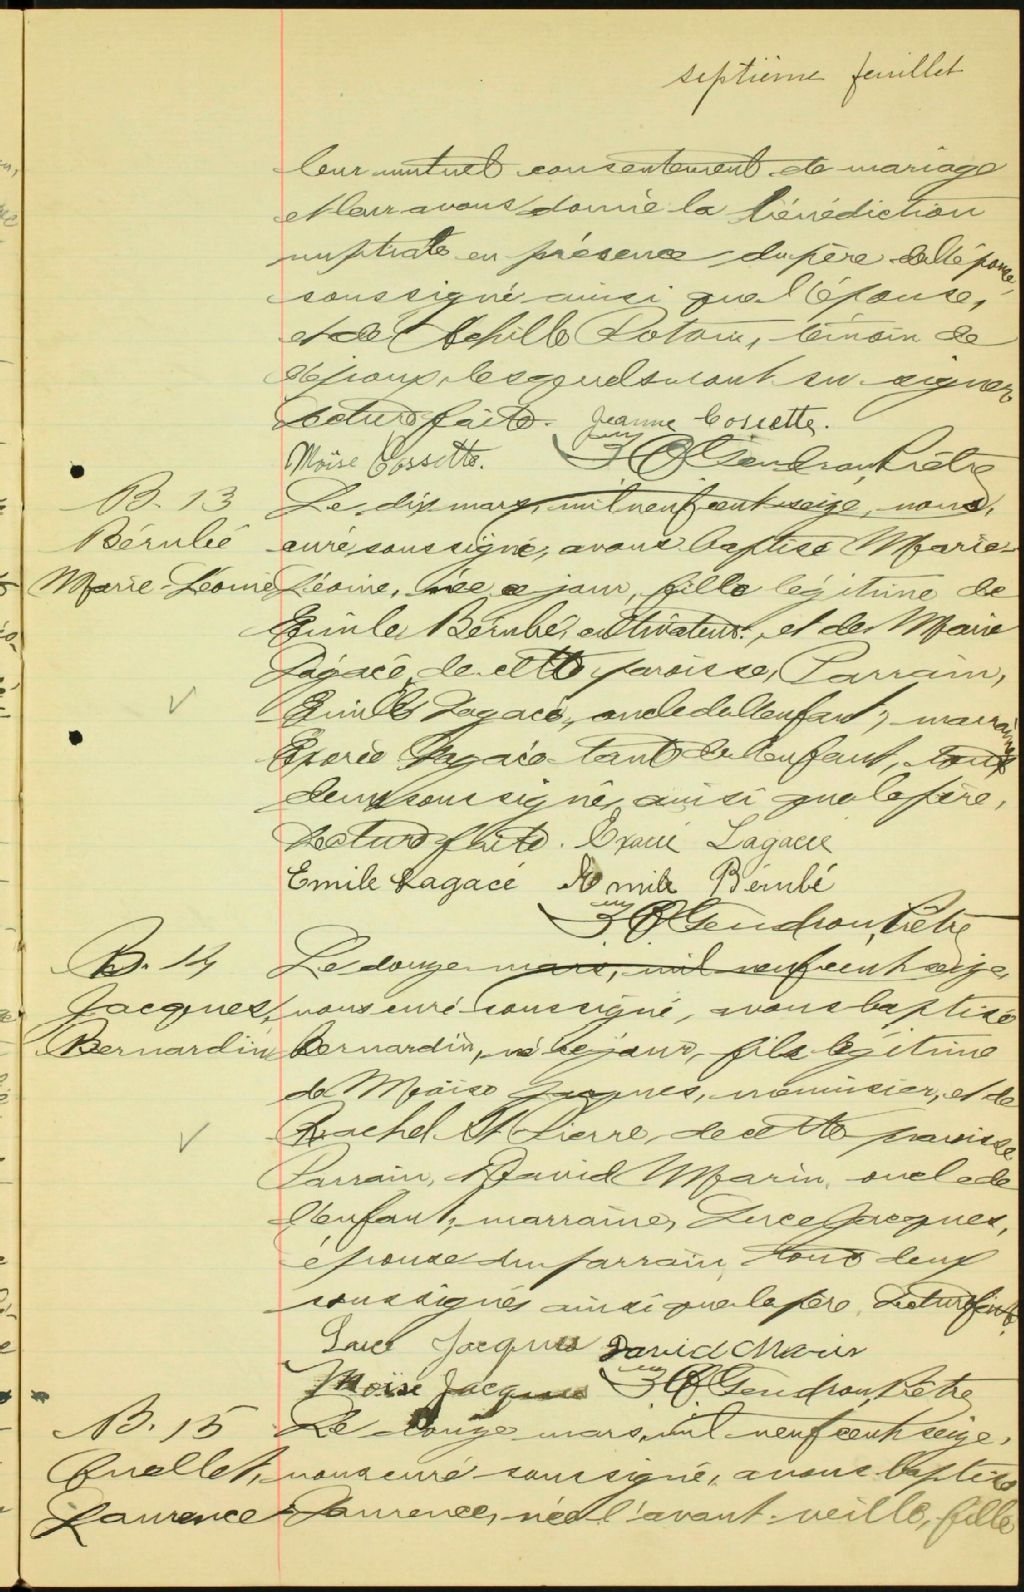 septième feuillet
leur mutuel consentement de mariage
et leur avons donné la bénédiction
nuptiale en présence du père de l'épouse,
soussigné ainsi que l'épouse,
et de Achille Potvin, témoin de
l'époux, lesquels n'ont su signer.
Lecture faite. Jeanne Cossette.
Moïse Cossette. Gendron, Ptre
B. 13
Bérubé
Marie-Léonie
Le dix mars, mil neuf cent seize, nous,
curé soussigné, avons baptisé Marie-
Léonie, née ce jour, fille légitime de
Émile Bérubé, cultivateur, et de Marie
Lagacé, de cette paroisse, Parrain,
Émile Lagacé, oncle de l'enfant; marraine
Exorée Lagacé tante de l'enfant, tous
deux soussignés ainsi que le père,
Lecture faite. Lagacée
Emile Lagacé Emile Bérubé
Gendron, Ptre
B. 14
Jacques,
Bernardin
Le douze mars, mil neuf cent seize,
nous curé soussigné, avons baptisé
Bernardin, né ce jour, fils légitime
de Moïse Jacques, menuisier, et de
Rachel St Pierre, de cette paroisse
Parrain, David Marin, oncle de
l'enfant; marraine, Luce Jacques,
épouse du parrain, tous deux
soussignés ainsi que le père. Lecture faite.
Luce Jacques David Marin
Moïse Jacques Gendron, Ptre
B. 15
Ouellet,
Laurence
Le douze mars, mil neuf cent seize,
nous curé soussigné, avons baptisé
Laurence, née l'avant-veille, fille